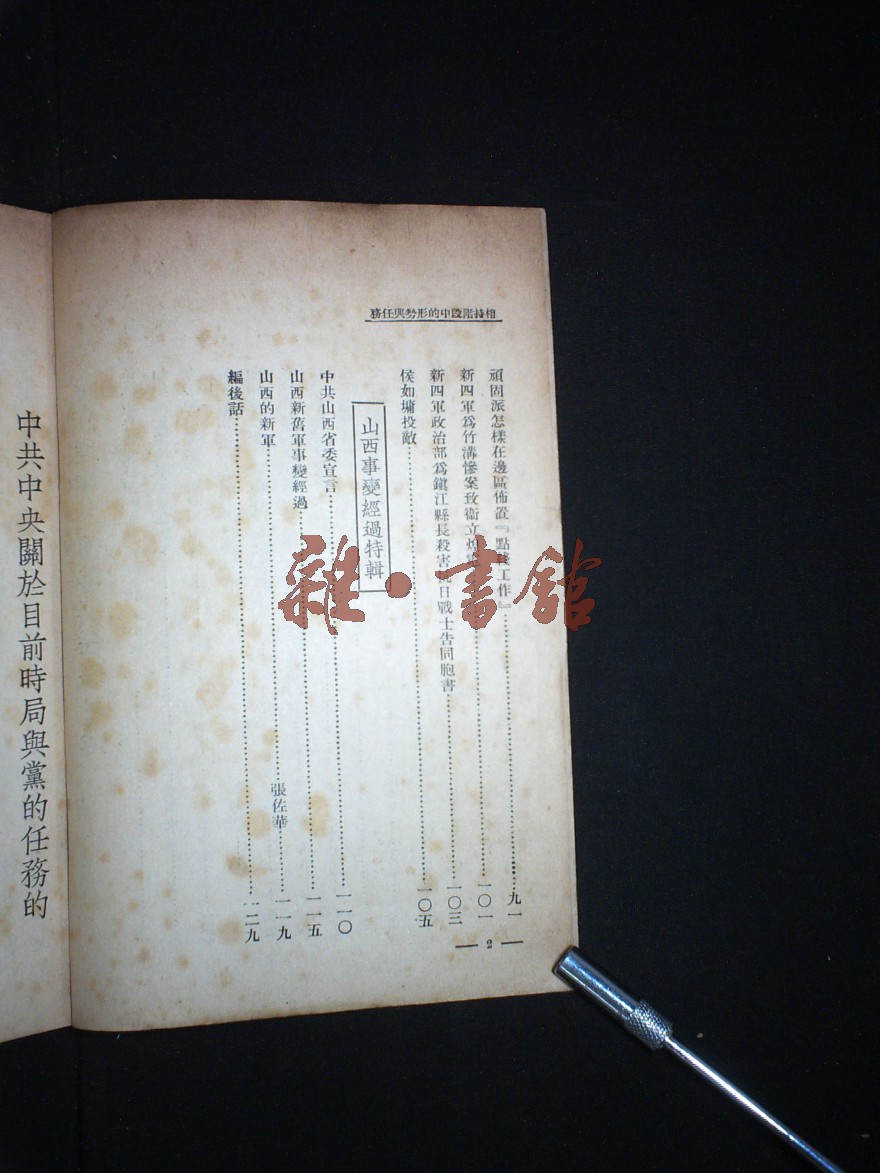 相持階段中的形勢與任務
頑固派怎樣在邊區佈置『點綫工作』……九一
新四軍爲竹溝慘案致衛立煌……一〇一
新四軍政治部爲鎮江縣長殺害抗日戰士告同胞書……一〇三
侯如墉投敵……一〇五
山西事變經過特輯
中共山西省委宣言……一一〇
山西新舊軍事變經過……一一五
山西的新軍……張佐華……一一九
編後話……一二九
— 2 —
中共中央關於目前時局與黨的任務的
雜·書館